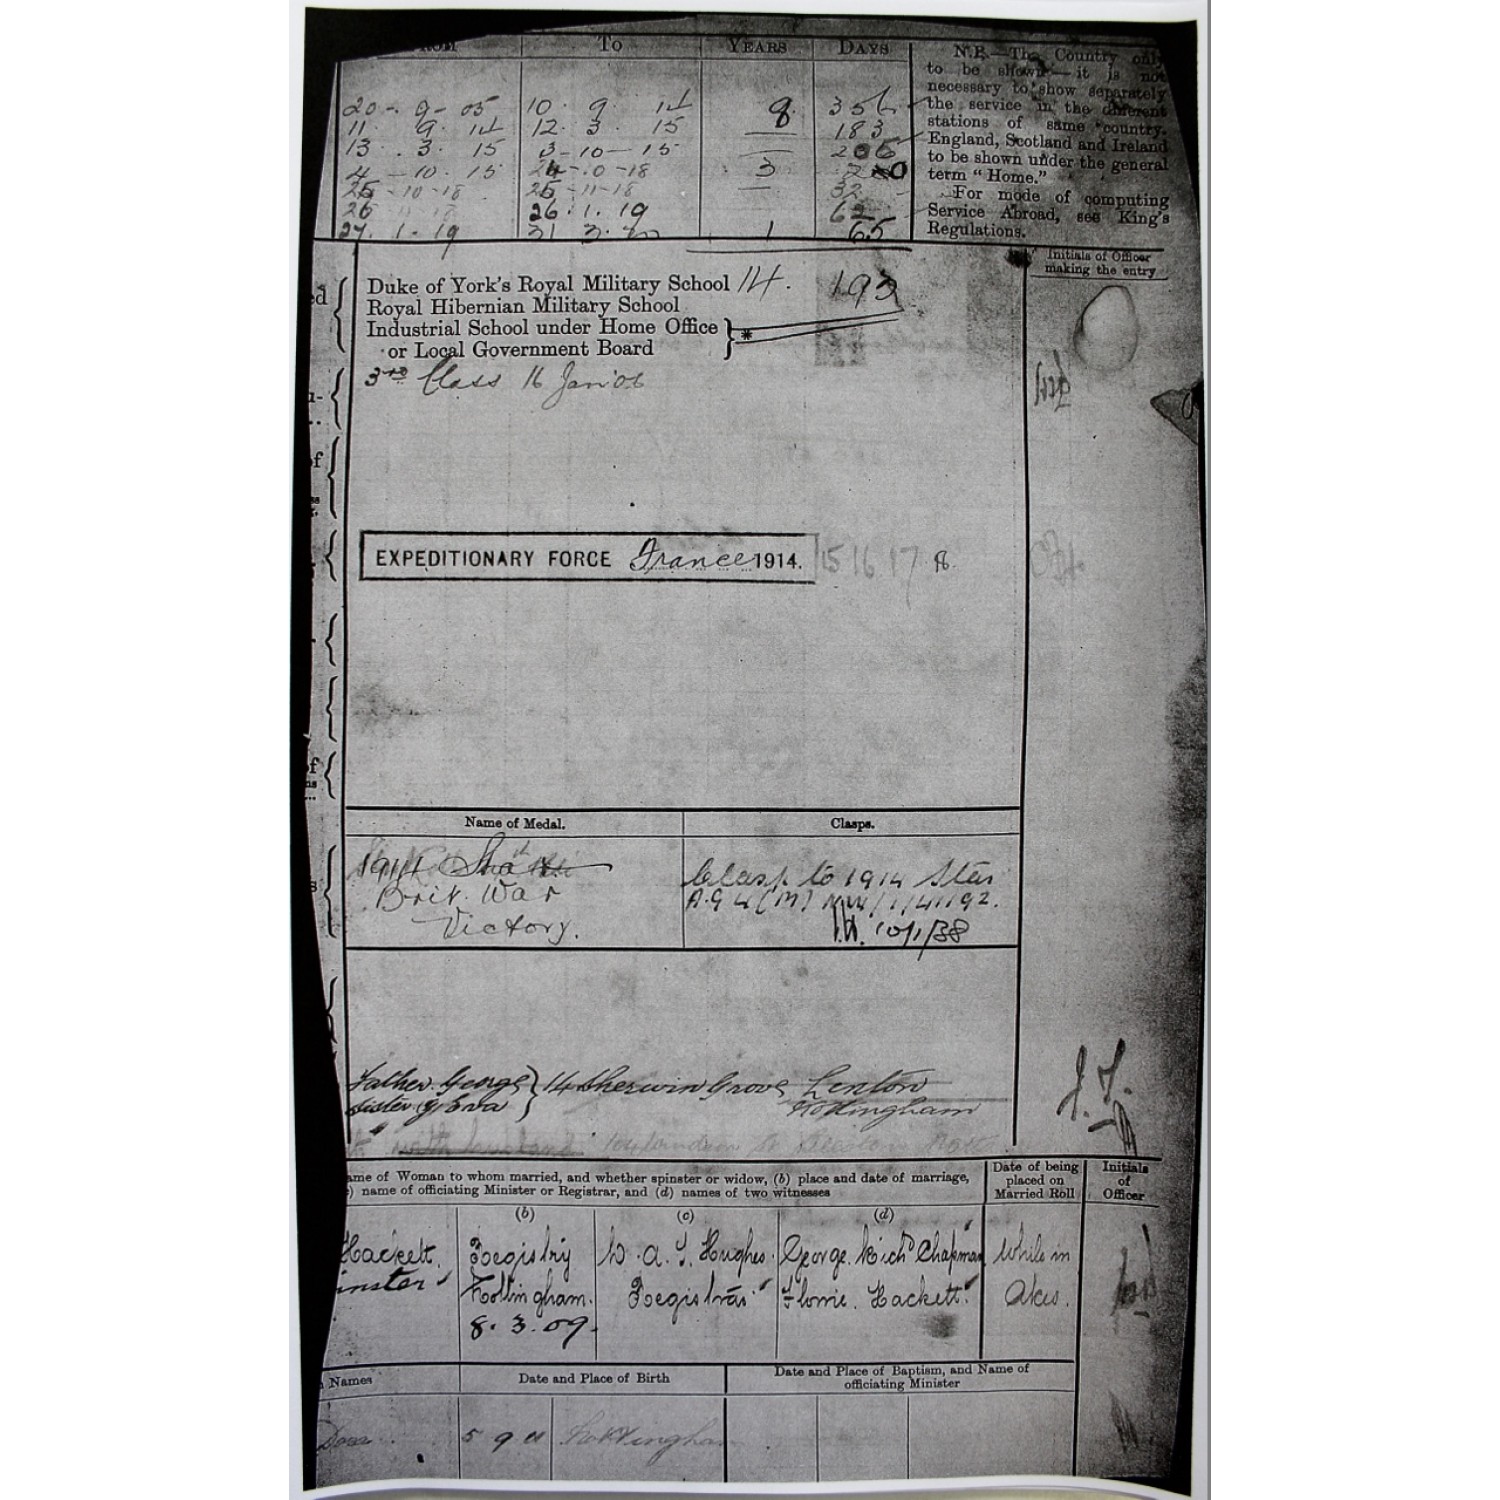 To YEARS DAYS
20 - 9 - 05 10. 9. 14 8 356
11. 9. 14 12. 3. 15 183
13. 3. 15 3 - 10 - 15 206
4 - 10. 15 24 - 10 - 18 3
25 - 10 - 18 25 - 11 - 18 32
26 26. 1. 19 62
27. 1. 19 31 3. 20 1 65
N.B.—The Country only
to be shown—it is not
necessary to show separately
the service in the different
stations of same country.
England, Scotland and Ireland
to be shown under the general
term "Home."
For mode of computing
Service Abroad, see King's
Regulations.
Initials of Officer
making the entry
Duke of York's Royal Military School 14. 193
Royal Hibernian Military School
Industrial School under Home Office } *
or Local Government Board
3rd Class 16 Jan '06
EXPEDITIONARY FORCE France 1914. 15 16 17 8.
Name of Medal. Clasps.
1914 Star
Brit. War
Victory.
Clasp to 1914 Star
10/1/38
Father. George } 14 Sherwin Grove Lenton
Sister Eva Nottingham
J. F.
ame of Woman to whom married, and whether spinster or widow, (b) place and date of marriage,
) name of officiating Minister or Registrar, and (d) names of two witnesses
Date of being
placed on
Married Roll
Initials
of
Officer
(b) (c) (d)
Hackett. Registry W. A. J. Hughes. George. Richd Chapman While in
inster Nottingham. Registrar Florrie. Hackett.
8. 3. 09.
Names Date and Place of Birth Date and Place of Baptism, and Name of
officiating Minister
5 9 11 Nottingham